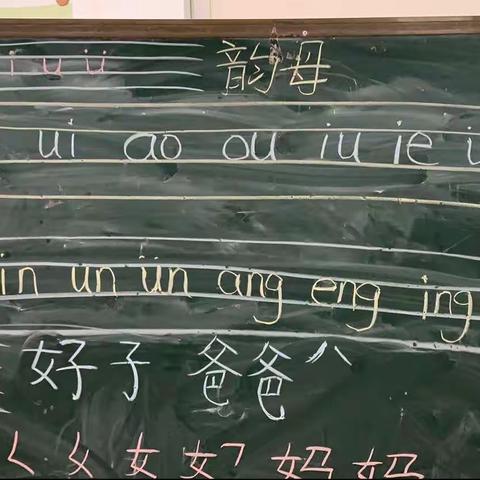 i u ü 韵母
ui ao ou iu ie
in un ün ang eng ing
好子 爸爸
女 妈 妈